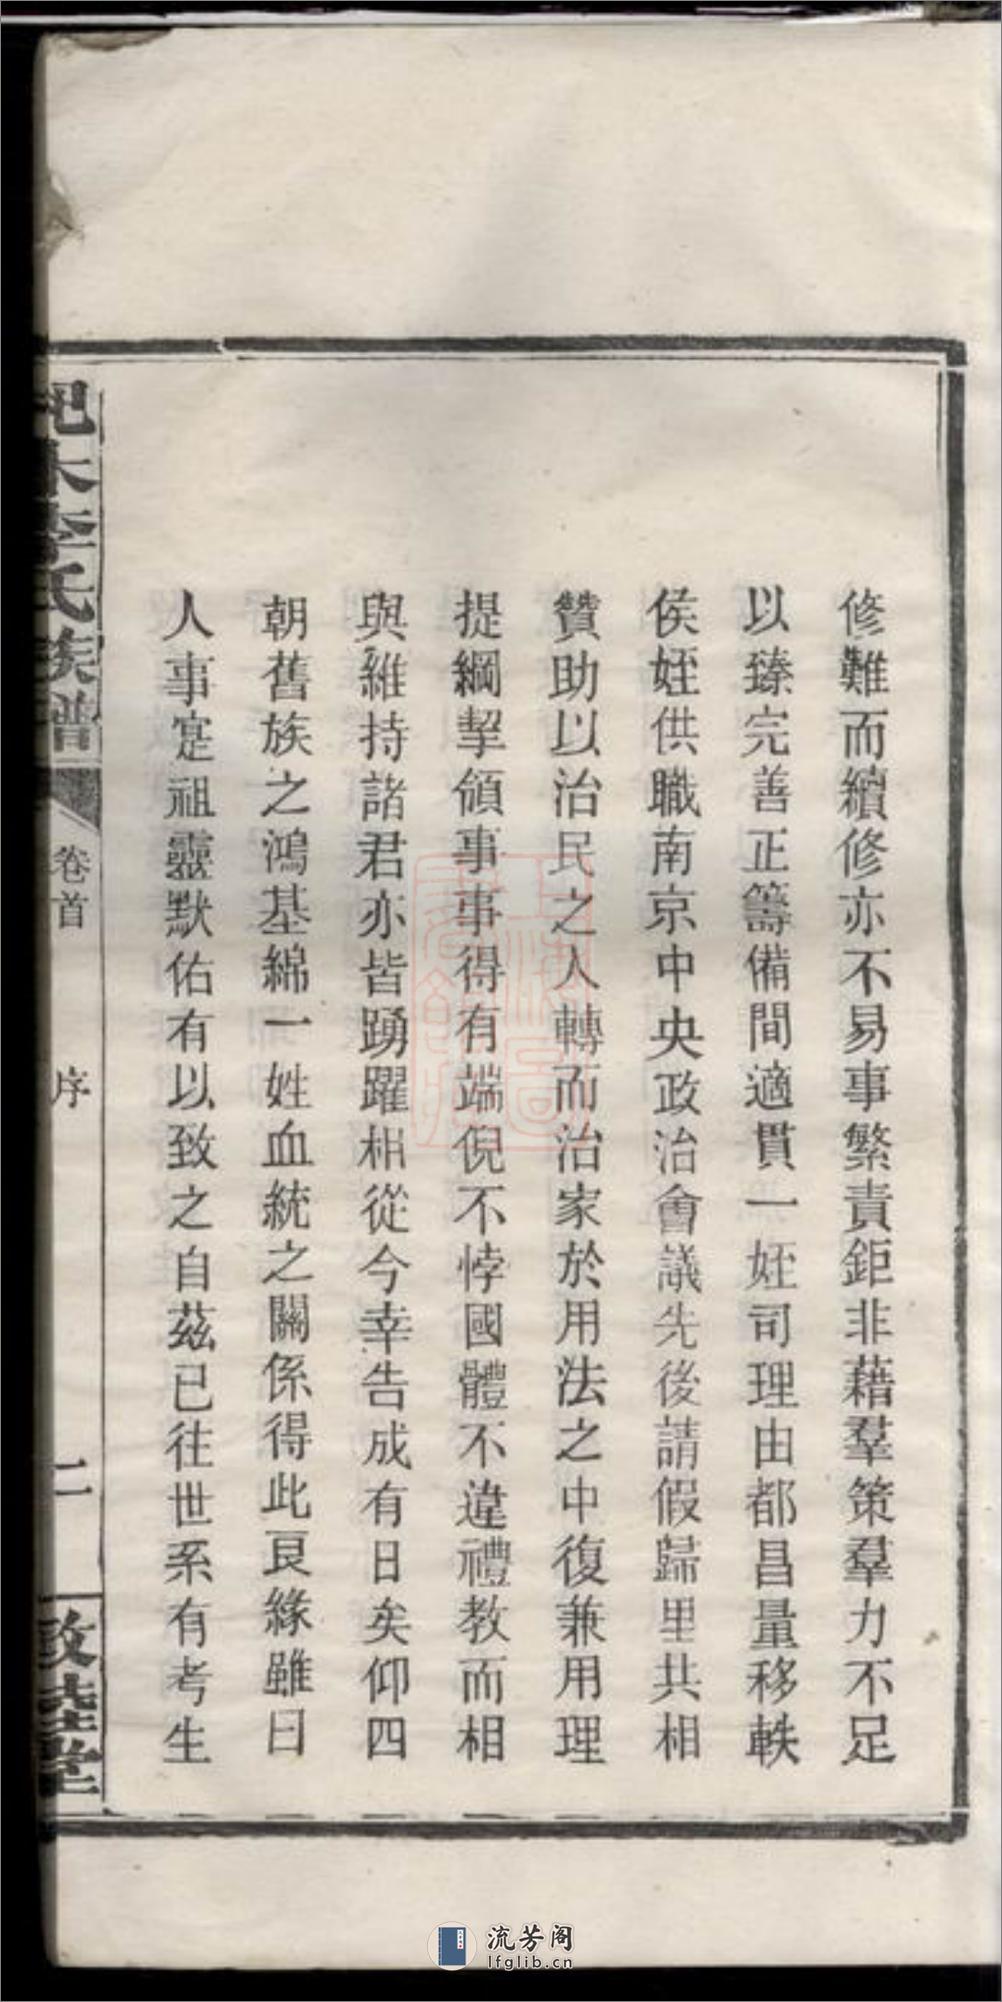 修難而續修亦不易事繁責鉅非藉羣策羣力不足
以臻完善正籌備間適貫一姪司理由都昌量移軼
侯姪供職南京中央政治會議先後請假歸里共相
贊助以治民之人轉而治家於用法之中復兼用理
提綱挈領事事得有端倪不悖國體不違禮教而相
與維持諸君亦皆踴躍相從今幸告成有日矣仰四
朝舊族之鴻基綿一姓血統之關係得此良緣雖曰
人事寔祖靈默佑有以致之自茲已往世系有考生
李氏族譜
卷首
序
二
敦睦堂
流芳阁
lfglib.cn